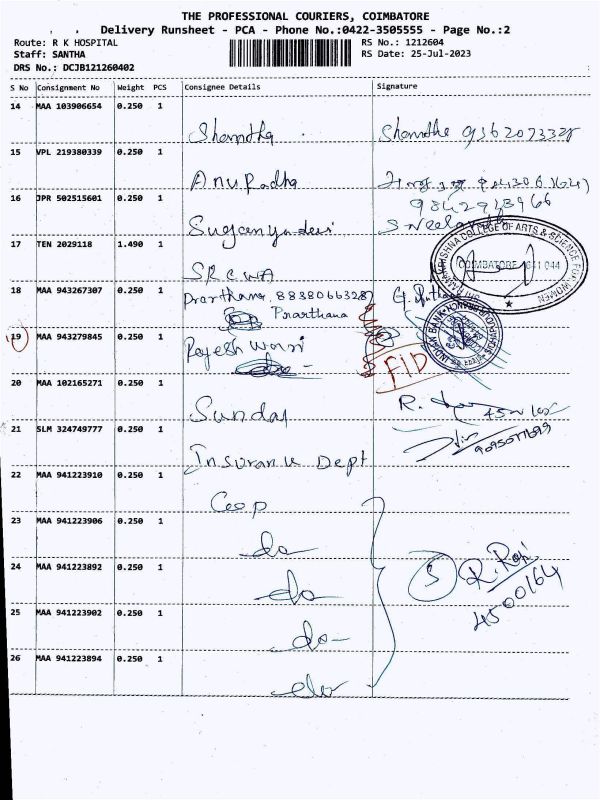 THE PROFESSIONAL COURIERS, COIMBATORE
Delivery Runsheet - PCA - Phone No.:0422-3505555 - Page No.:2
Route: R K HOSPITAL RS No.: 1212604
Staff: SANTHA RS Date: 25-Jul-2023
DRS No.: DCJB121260402
S No Consignment No Weight PCS Consignee Details Signature
14 MAA 103906654 0.250 1
Shamtha Shamtha
15 VPL 219380339 0.250 1
Anuradha
16 JPR 502515601 0.250 1 9842928966
Sugcanyadevi
17 TEN 2029118 1.490 1
SRCWA
COIMBATORE 641 044
18 MAA 943267307 0.250 1 Prarthana. 8838066328
Prarthana
INDIAN BANK
19 MAA 943279845 0.250 1
Rajesh
FID
20 MAA 102165271 0.250 1
Sundar R.
21 SLM 324749777 0.250 1
Insurance Dept
22 MAA 941223910 0.250 1
Coop
23 MAA 941223906 0.250 1
do
24 MAA 941223892 0.250 1 5 R. Raji
do 4500164
25 MAA 941223902 0.250 1
do
26 MAA 941223894 0.250 1
do